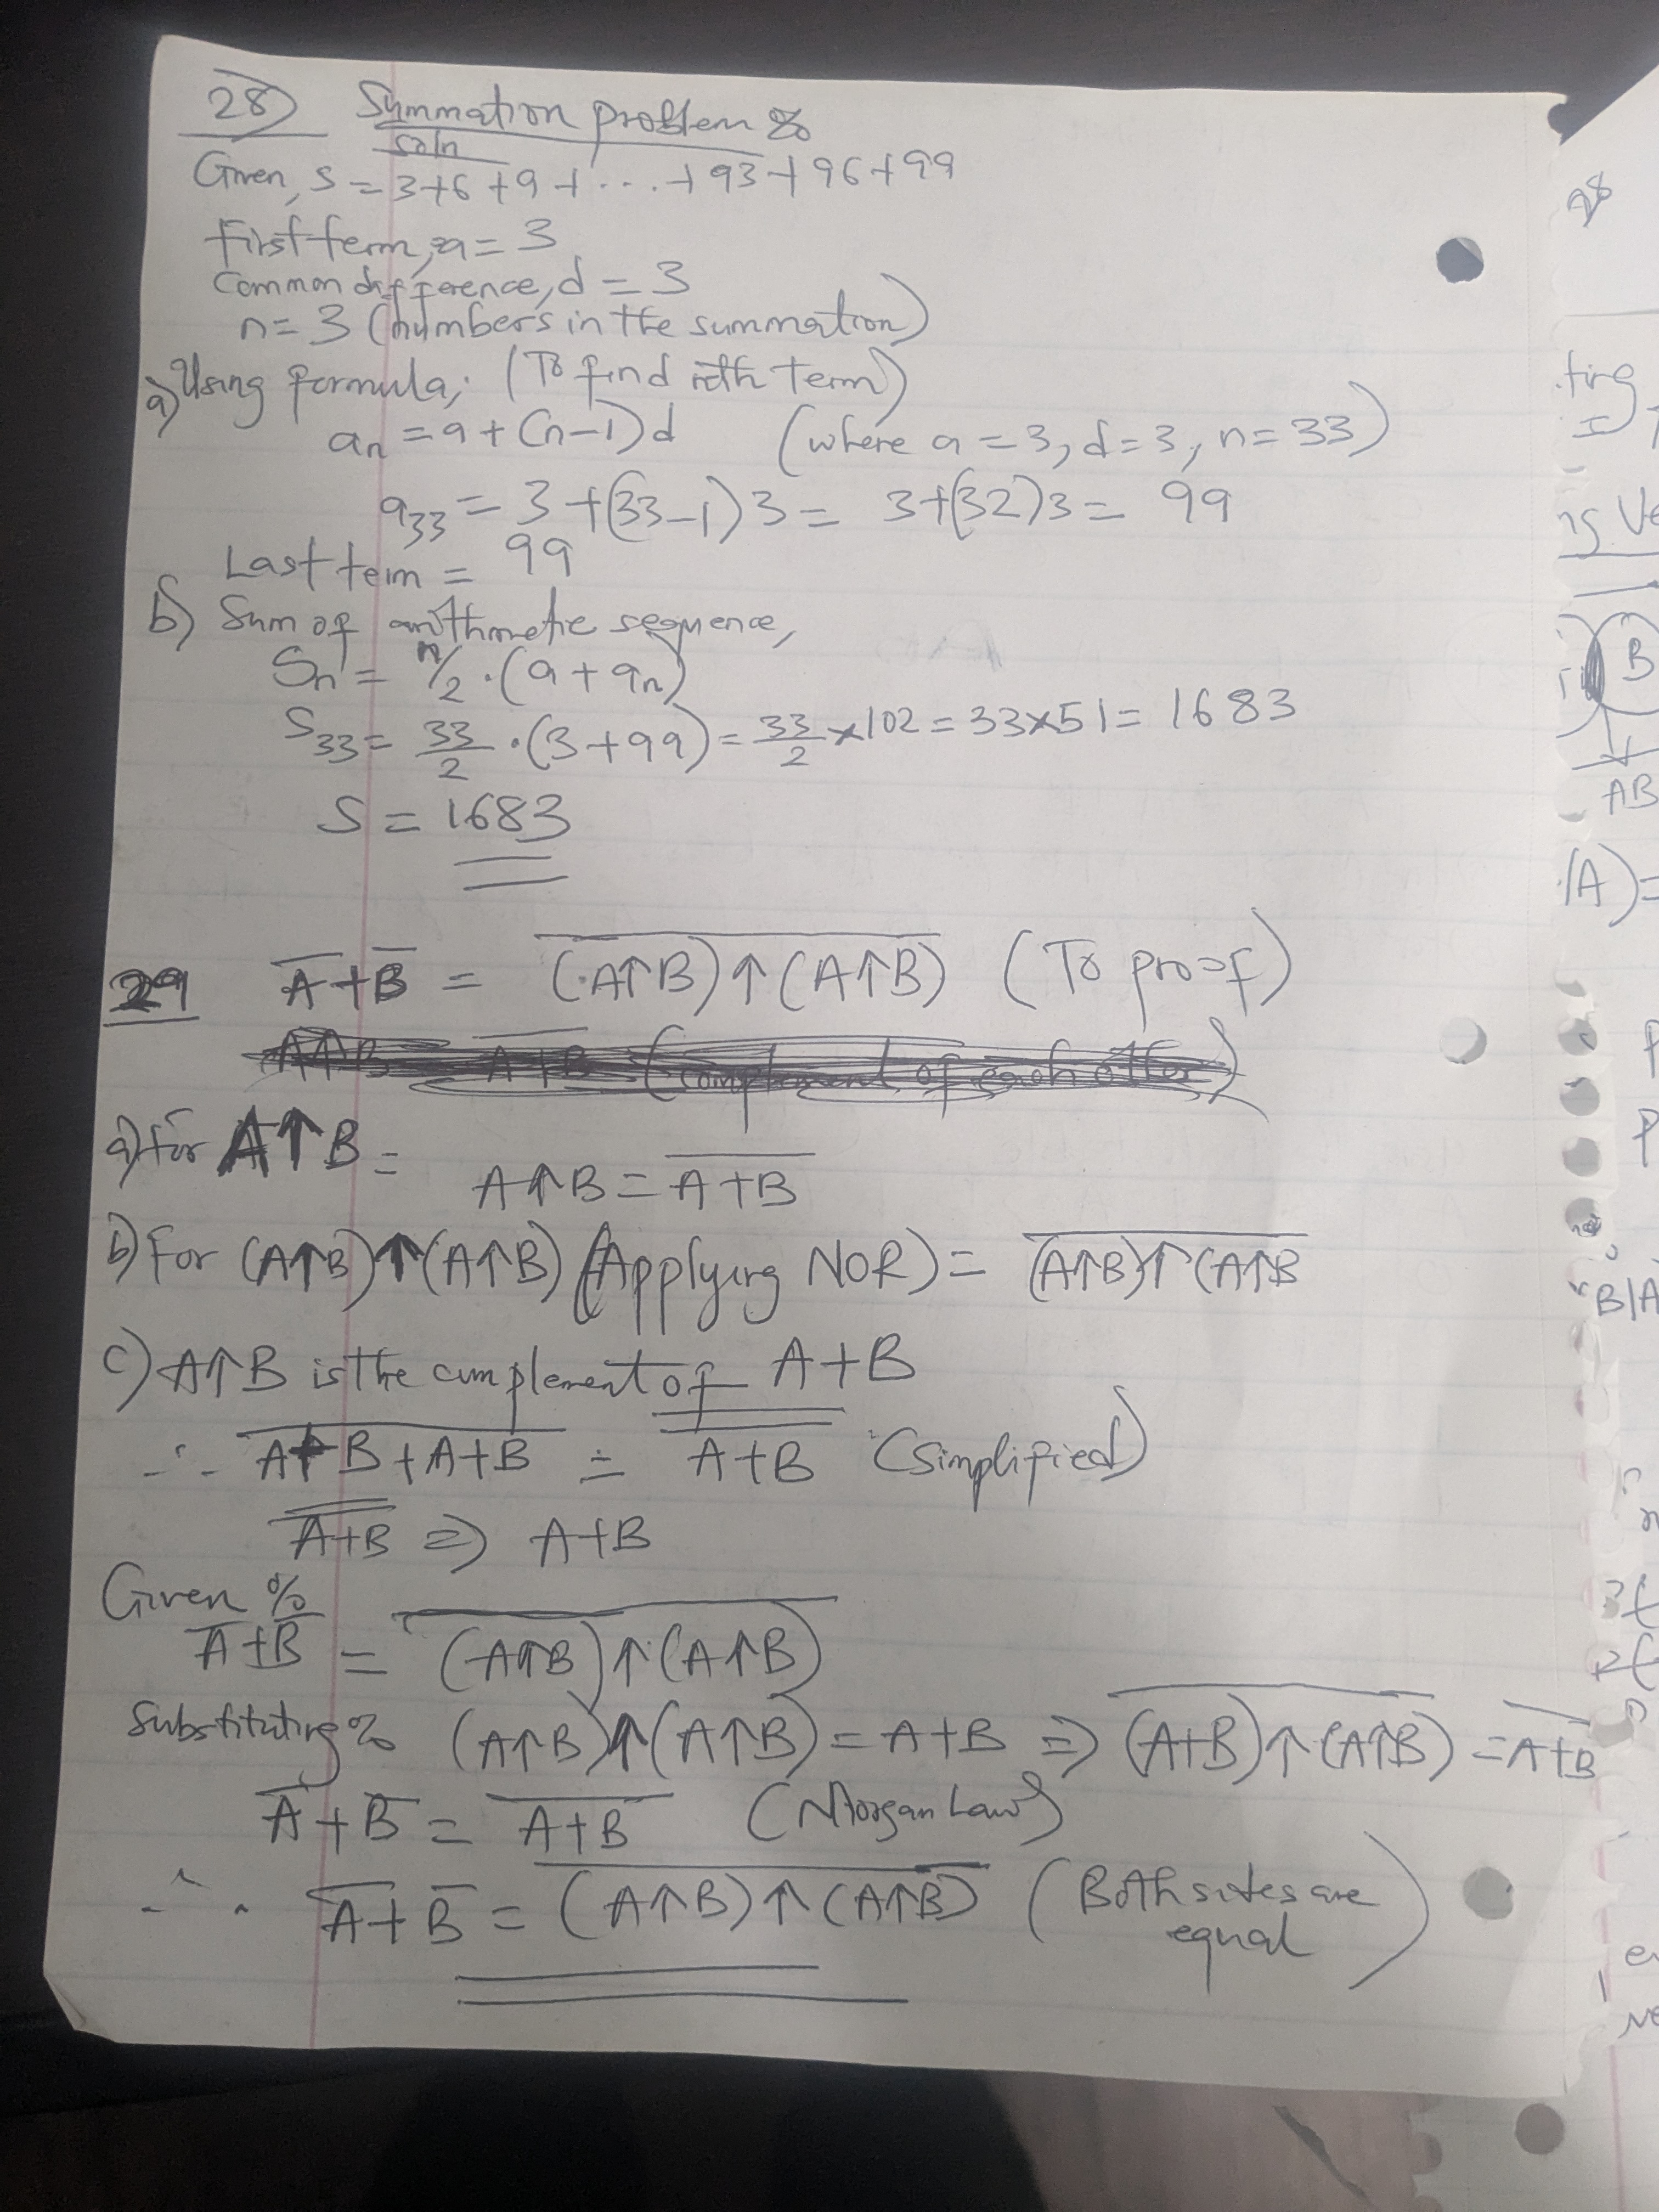 28) Summation problem:
soln
Given, S = 3+6+9+....+93+96+99
First term, a = 3
Common difference, d = 3
n = 3 (numbers in the summation)
a) Using formula, (To find nth term)
aₙ = a+(n-1)d (where a = 3, d = 3, n = 33)
a₃₃ = 3+(33-1)3 = 3+(32)3 = 99
Last term = 99
b) Sum of arithmetic sequence,
Sₙ = n/2 . (a + aₙ)
S₃₃ = 33/2 . (3+99) = 33/2 × 102 = 33×51 = 1683
S = 1683
29 A̅ + B̅ = \overline{(A↑B)↑(A↑B)} (To proof)
A↑B = \overline{A+B} (complement of each other)
a) For A↑B =
A↑B = \overline{A+B}
b) For (A↑B)↑(A↑B) (Applying NOR) = \overline{(A↑B)↑(A↑B}
c) A↑B is the complement of A+B
∴ \overline{A+B+A+B} = \overline{\overline{A+B}} (Simplified)
\overline{\overline{A+B}} ⇒ A+B
Given:
A̅ + B̅ = \overline{(A↑B)↑(A↑B)}
Substituting: (A↑B)↑(A↑B) = A+B ⇒ \overline{(A+B)↑(A↑B)} = \overline{A+B}
A̅ + B̅ = \overline{A+B} (Morgan Law)
∴ A̅ + B̅ = \overline{(A↑B)↑(A↑B)} (Both sites are
equal)
28
B
AB
(A)=
B|A